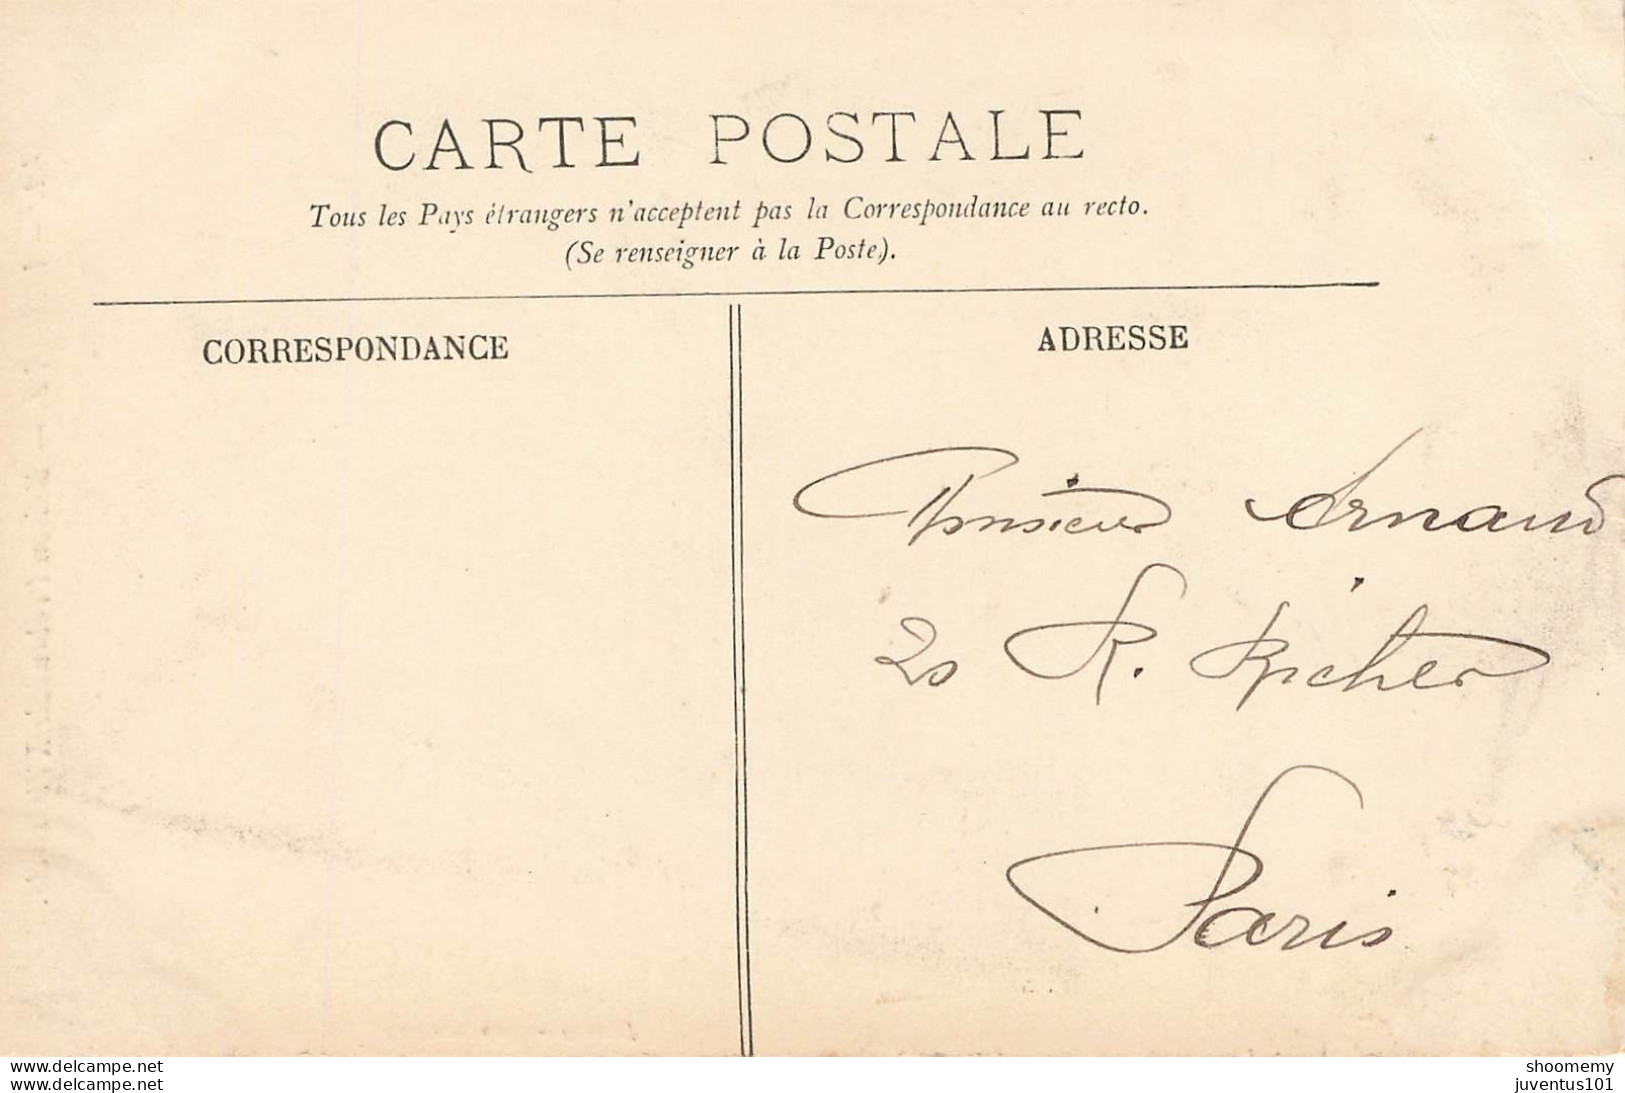 CARTE POSTALE
Tous les Pays étrangers n'acceptent pas la Correspondance au recto.
(Se renseigner à la Poste).
CORRESPONDANCE
ADRESSE
Monsieur Arnaud
20 R. Richer
Paris
www.delcampe.net
www.delcampe.net
shoomemy
juventus101